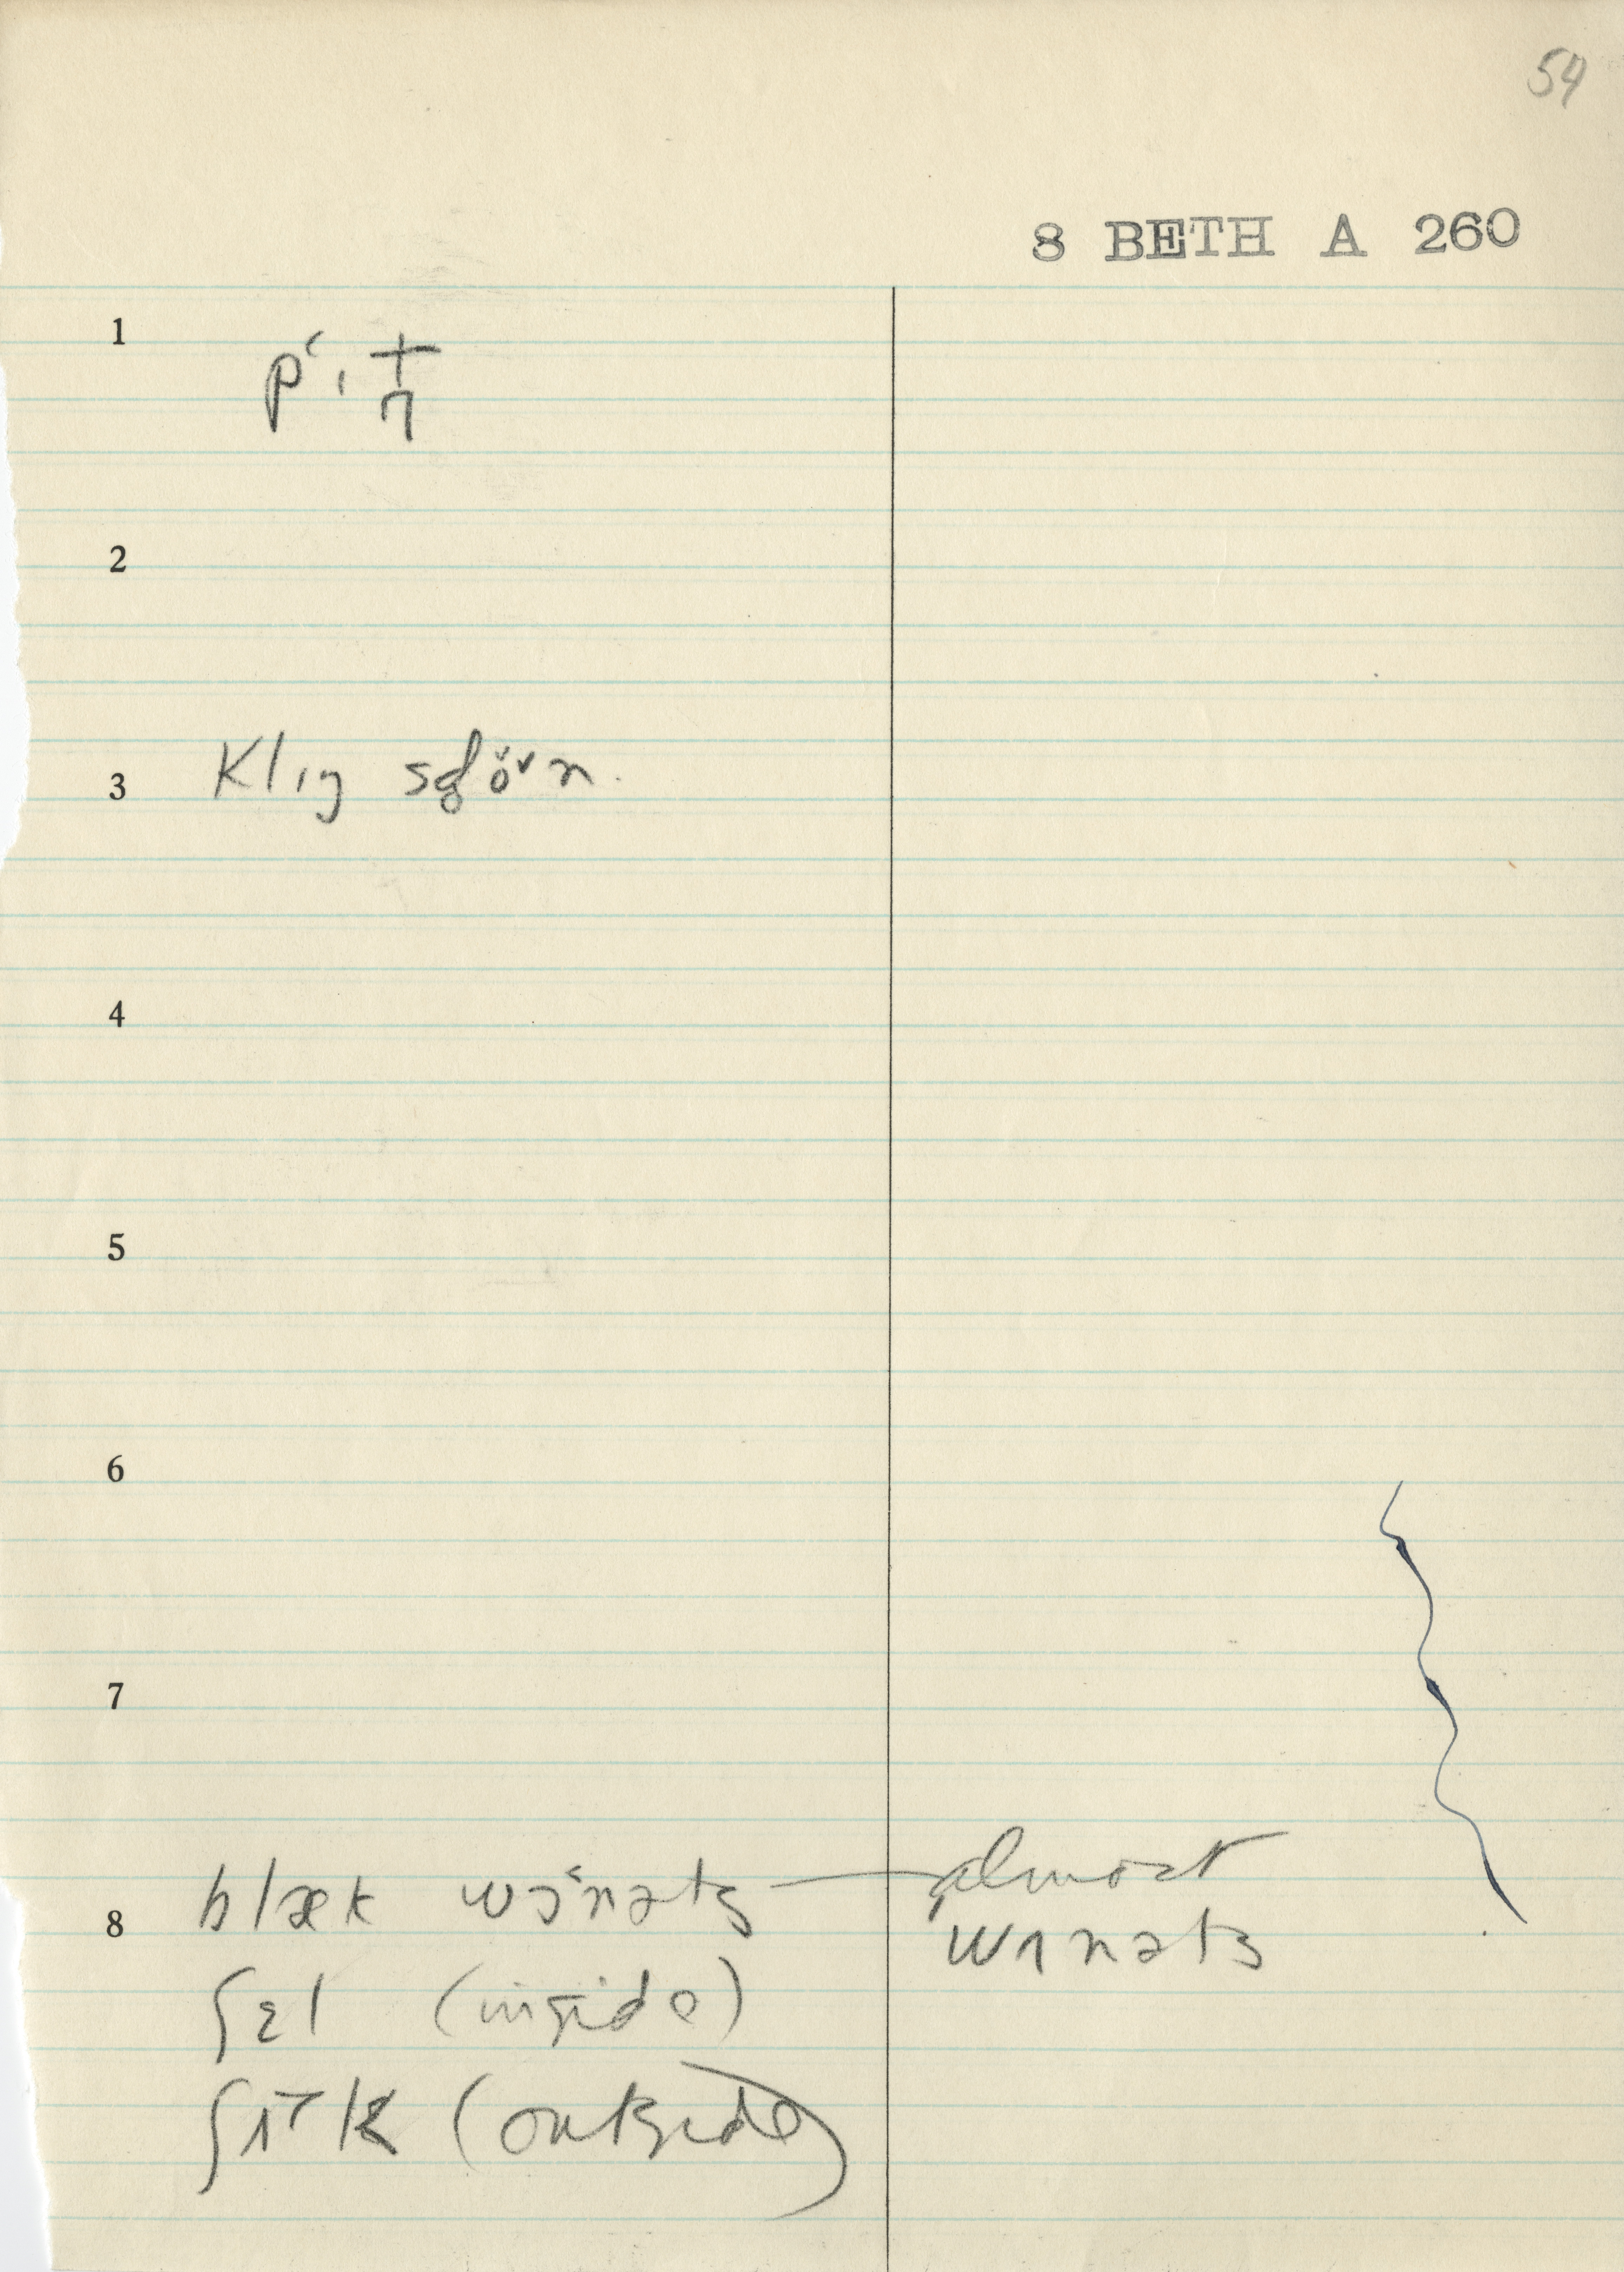 54
8 BETH A 260
1
2
3 klɪŋ
4
5
6
7
8 blæk wɔ'nəts — almost wɑnəts
ʃɛl (inside)
(outside)